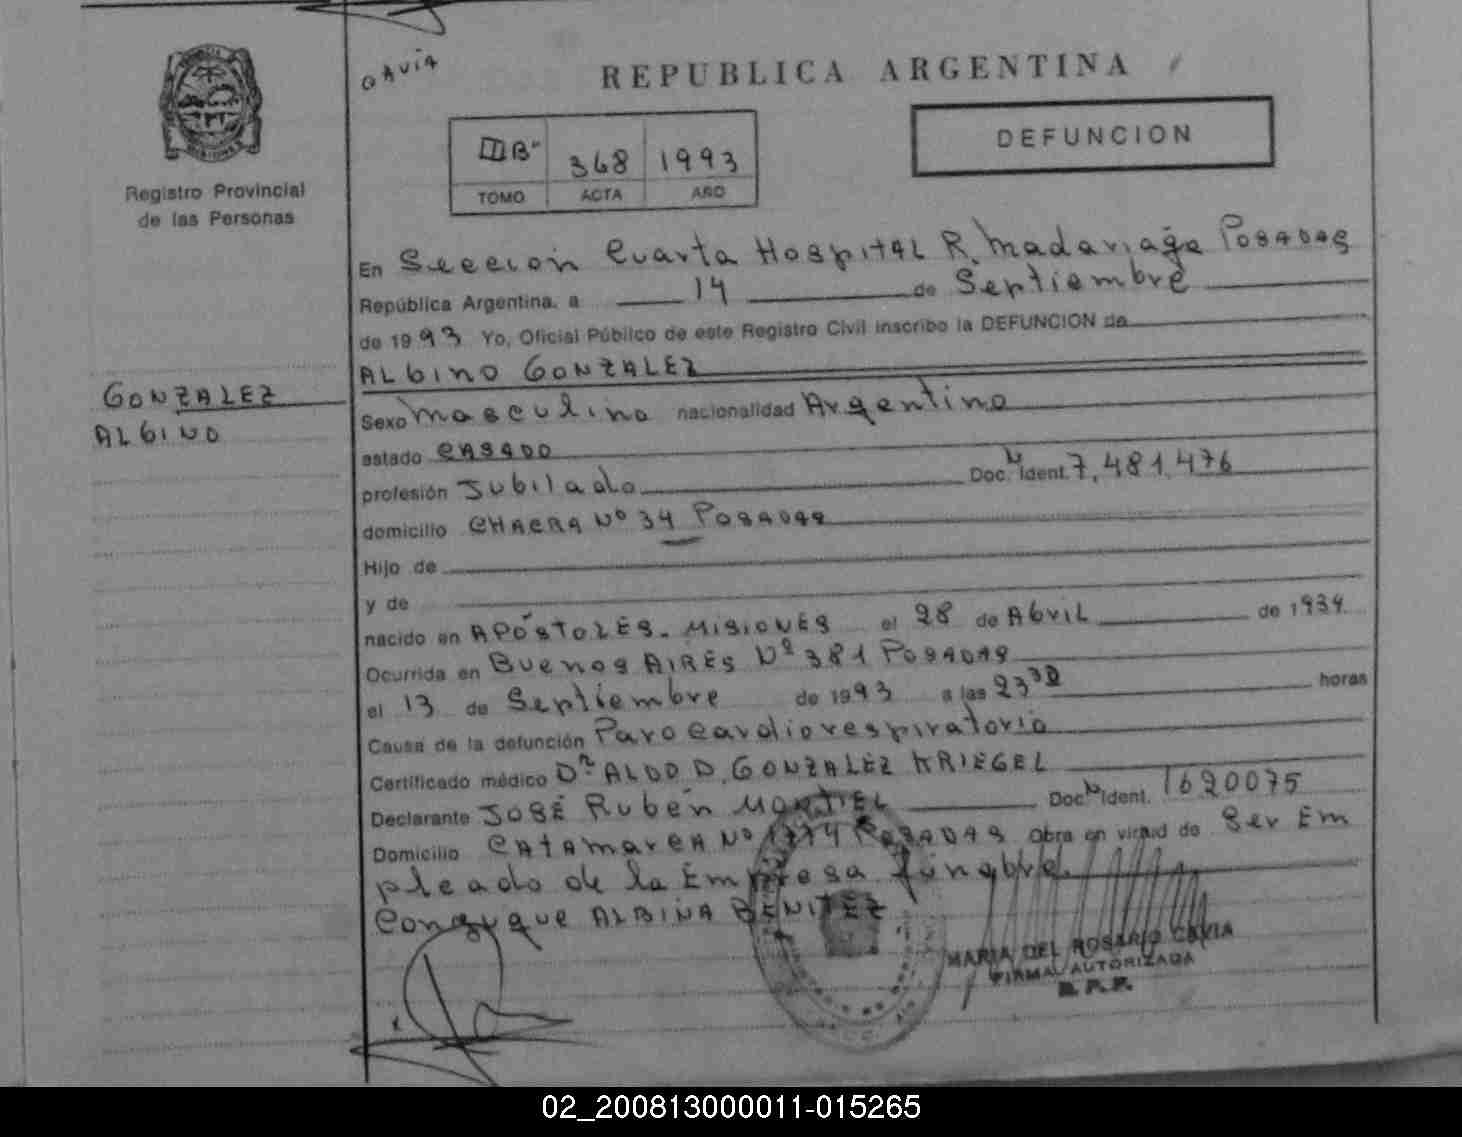 REPUBLICA ARGENTINA
DEFUNCION
368 1993
TOMO ACTA AÑO
Registro Provincial
de las Personas
GONZALEZ
ALBINO
En Seccion Cuarta Hospital R. Madariaga Posadas
República Argentina, a 14 de Septiembre
de 1993 Yo, Oficial Público de este Registro Civil inscribo la DEFUNCION de
ALBINO GONZALEZ
Sexo Masculino nacionalidad Argentino
estado CASADO
profesión Jubilado Doc. N Ident. 7.481.476
domicilio CHACRA Nº 34 POSADAS
Hijo de
y de
nacido en APÓSTOLES. MISIONES el 28 de Abril de 1934.
Ocurrida en Buenos AIRES Nº 381 POSADAS
el 13 de Septiembre de 1993 a las 23 30 horas
Causa de la defunción Paro Cardiorespiratorio
Certificado médico Dr. ALDO D. GONZALEZ KRIEGEL
Declarante JOSÉ Rubén MONTIEL Doc. N Ident. 1620075
Domicilio CATAMARCA Nº 1774 POSADAS Obra en virtud de Ser Em
pleado de la Empresa fúnebre.
Conyuque ALBINA BENITEZ
MARIA DEL ROSARIO CAVIA
FIRMA AUTORIZADA
R. P. P.
02_200813000011-015265